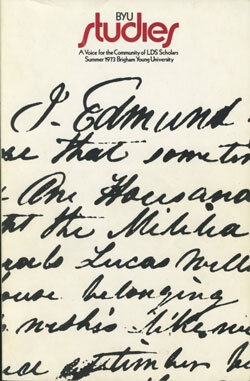 BYU
studies
A Voice for the Community of LDS Scholars
Summer 1973 Brigham Young University
I. Edmund
se that somet
One Thousand
at the Militia
Lucas Will
ouse belonging
like
timber